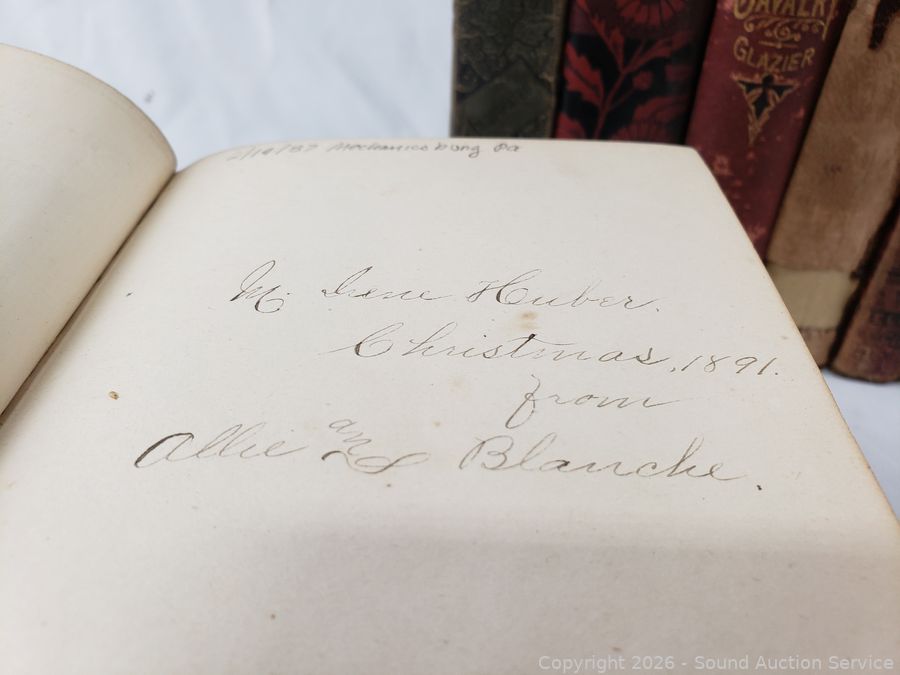 CAVALRY
GLAZIER
2/19/87 Mechanicsburg Pa
M. Irene Huber.
Christmas, 1891.
from
Allie and Blanche.
Copyright 2026 - Sound Auction Service